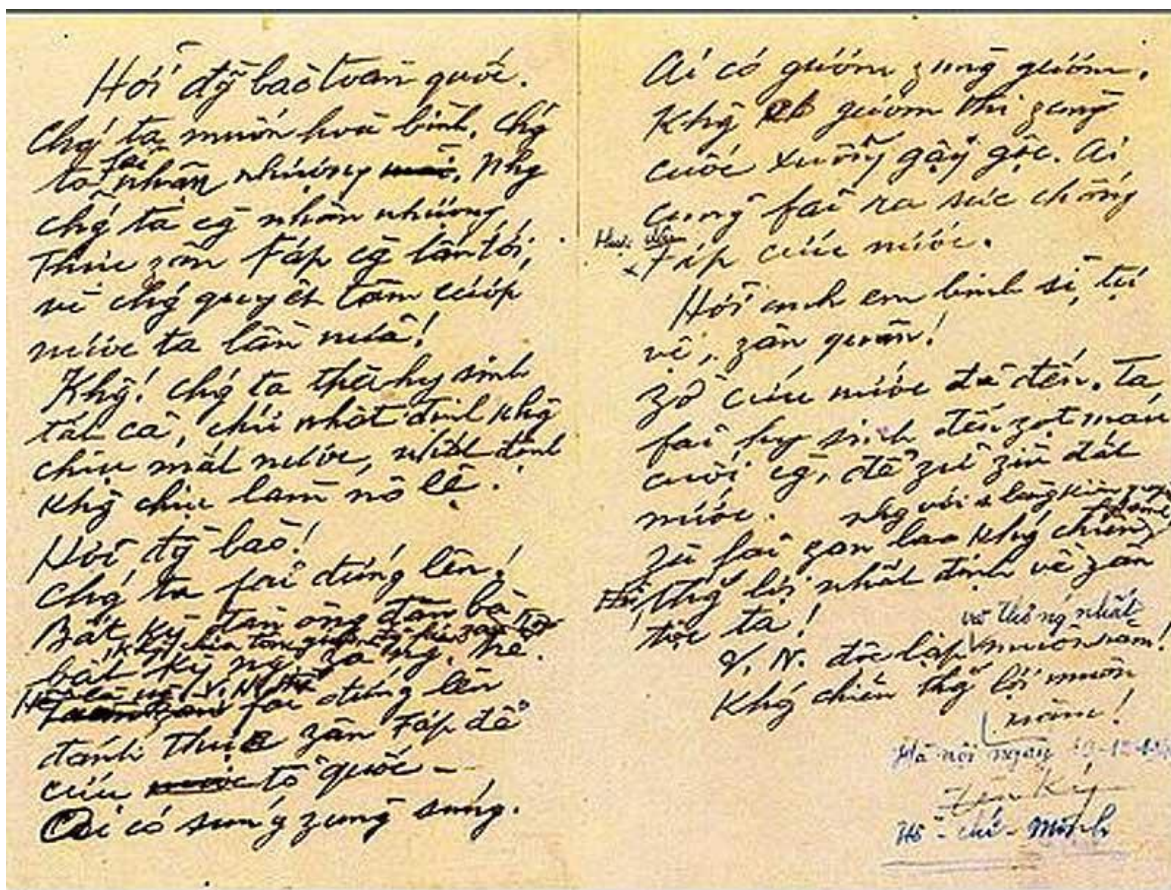 Hỡi đg̃ bào toàn quốc.
Chǵ ta muốn hoà bình, chǵ
ta fải nhân nhượng. Nhg
chǵ ta cg̀ nhân nhượng
Thực zân Fáp cg̀ lấn tới,
vì chǵ quyết tâm cướp
nước ta lần nữa!
Khg! chǵ ta thà hy sinh
tất cả, chứ nhất định khg
chịu mất nước, nhất định
khg chịu làm nô lệ.
Hỡi đg̀ bào!
Chǵ ta fải đứng lên!
Bất kỳ đàn ông đàn bà
bất kỳ ng. già ng. trẻ.
fải đứng lên
đánh thực zân Fáp để
cứu tổ quốc –
Ai có súng zùng súng.
Ai có gươm zùng gươm.
Khg có gươm thì zùng
cuốc xuổng gậy gộc. Ai
cũng fải ra sức chống
Fáp cứu nước.
Hỡi anh em binh sĩ, tự
vệ, zân quân!
Zờ cứu nước đã đến. Ta
fải hy sinh đến zọt máu
cuối cg̀, để zữ zìn đất
nước.
Zù fải zan lao khǵ chiến
nhg với 1 lòng kiên quyết
thg̃ lợi nhất định về zân
tộc ta!
và thống nhất
V. N. độc lập muôn năm!
Khǵ chiến thg̃ lợi muôn
năm!
Hà nội ngày 19-12-
Hồ-chí-Minh